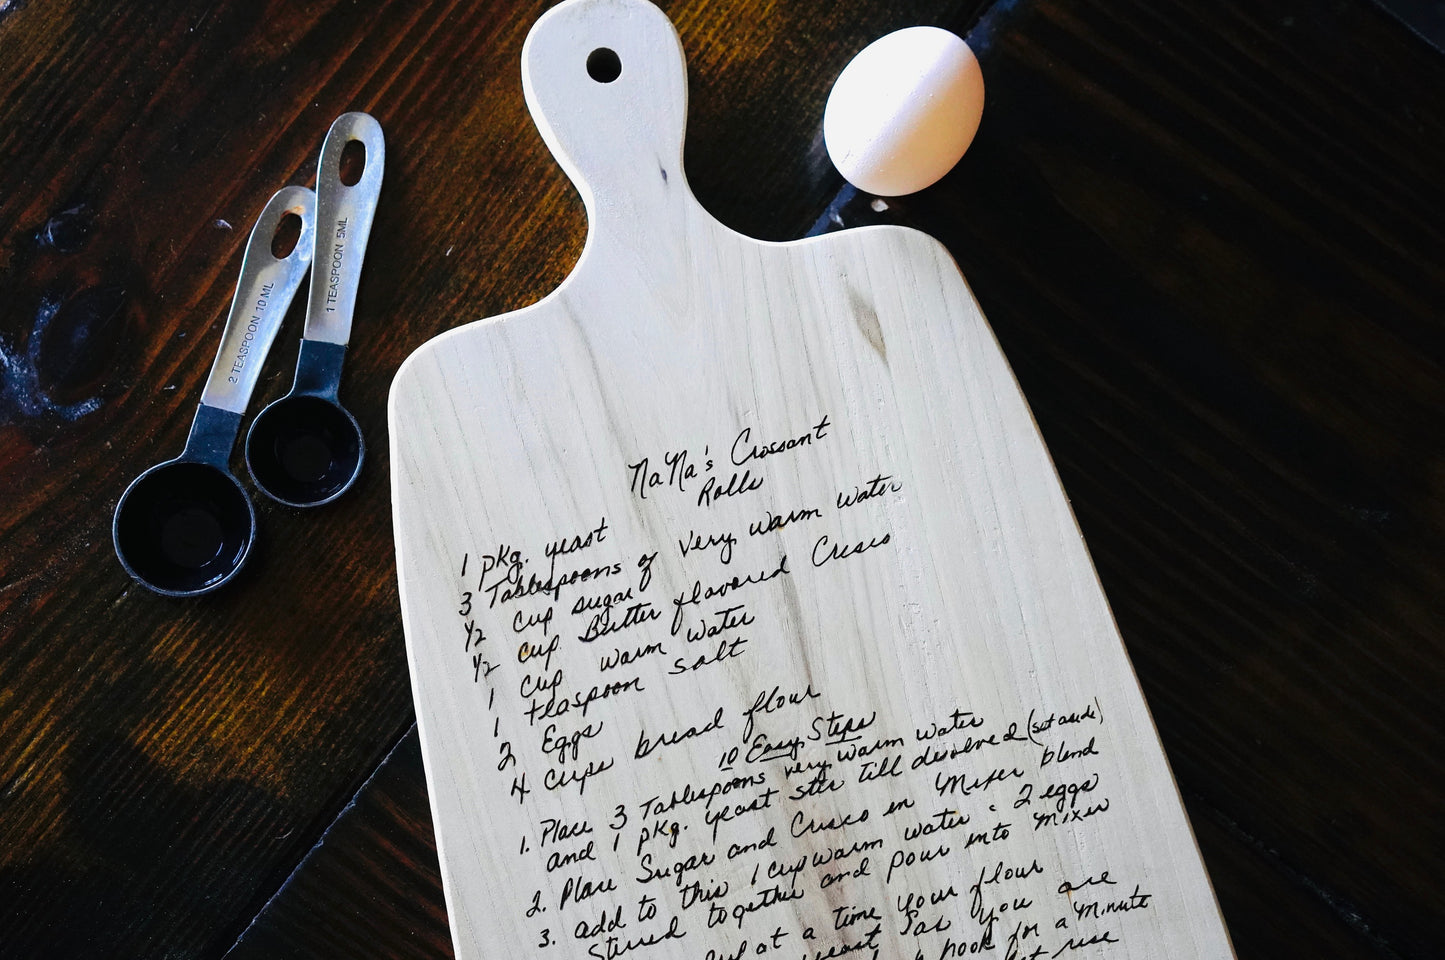 1 TEASPOON 5ML
2 TEASPOON 10 ML
NaNa's Crossant
Rolls
1 pkg. yeast
3 Tablespoons of very warm water
1/2 cup sugar
1/2 cup Butter flavored Crisco
1 cup warm water
1 teaspoon salt
2 Eggs
4 cups bread flour
10 Easy Steps
1. Place 3 Tablespoons very warm water
and 1 pkg. yeast stir till disolved (set aside)
2. Place Sugar and Crisco in Mixer blend
3. add to this 1 cup warm water 2 eggs
Stirred together and pour into Mixer
at a time your flour
yeast as you are
hook for a minute
let rise